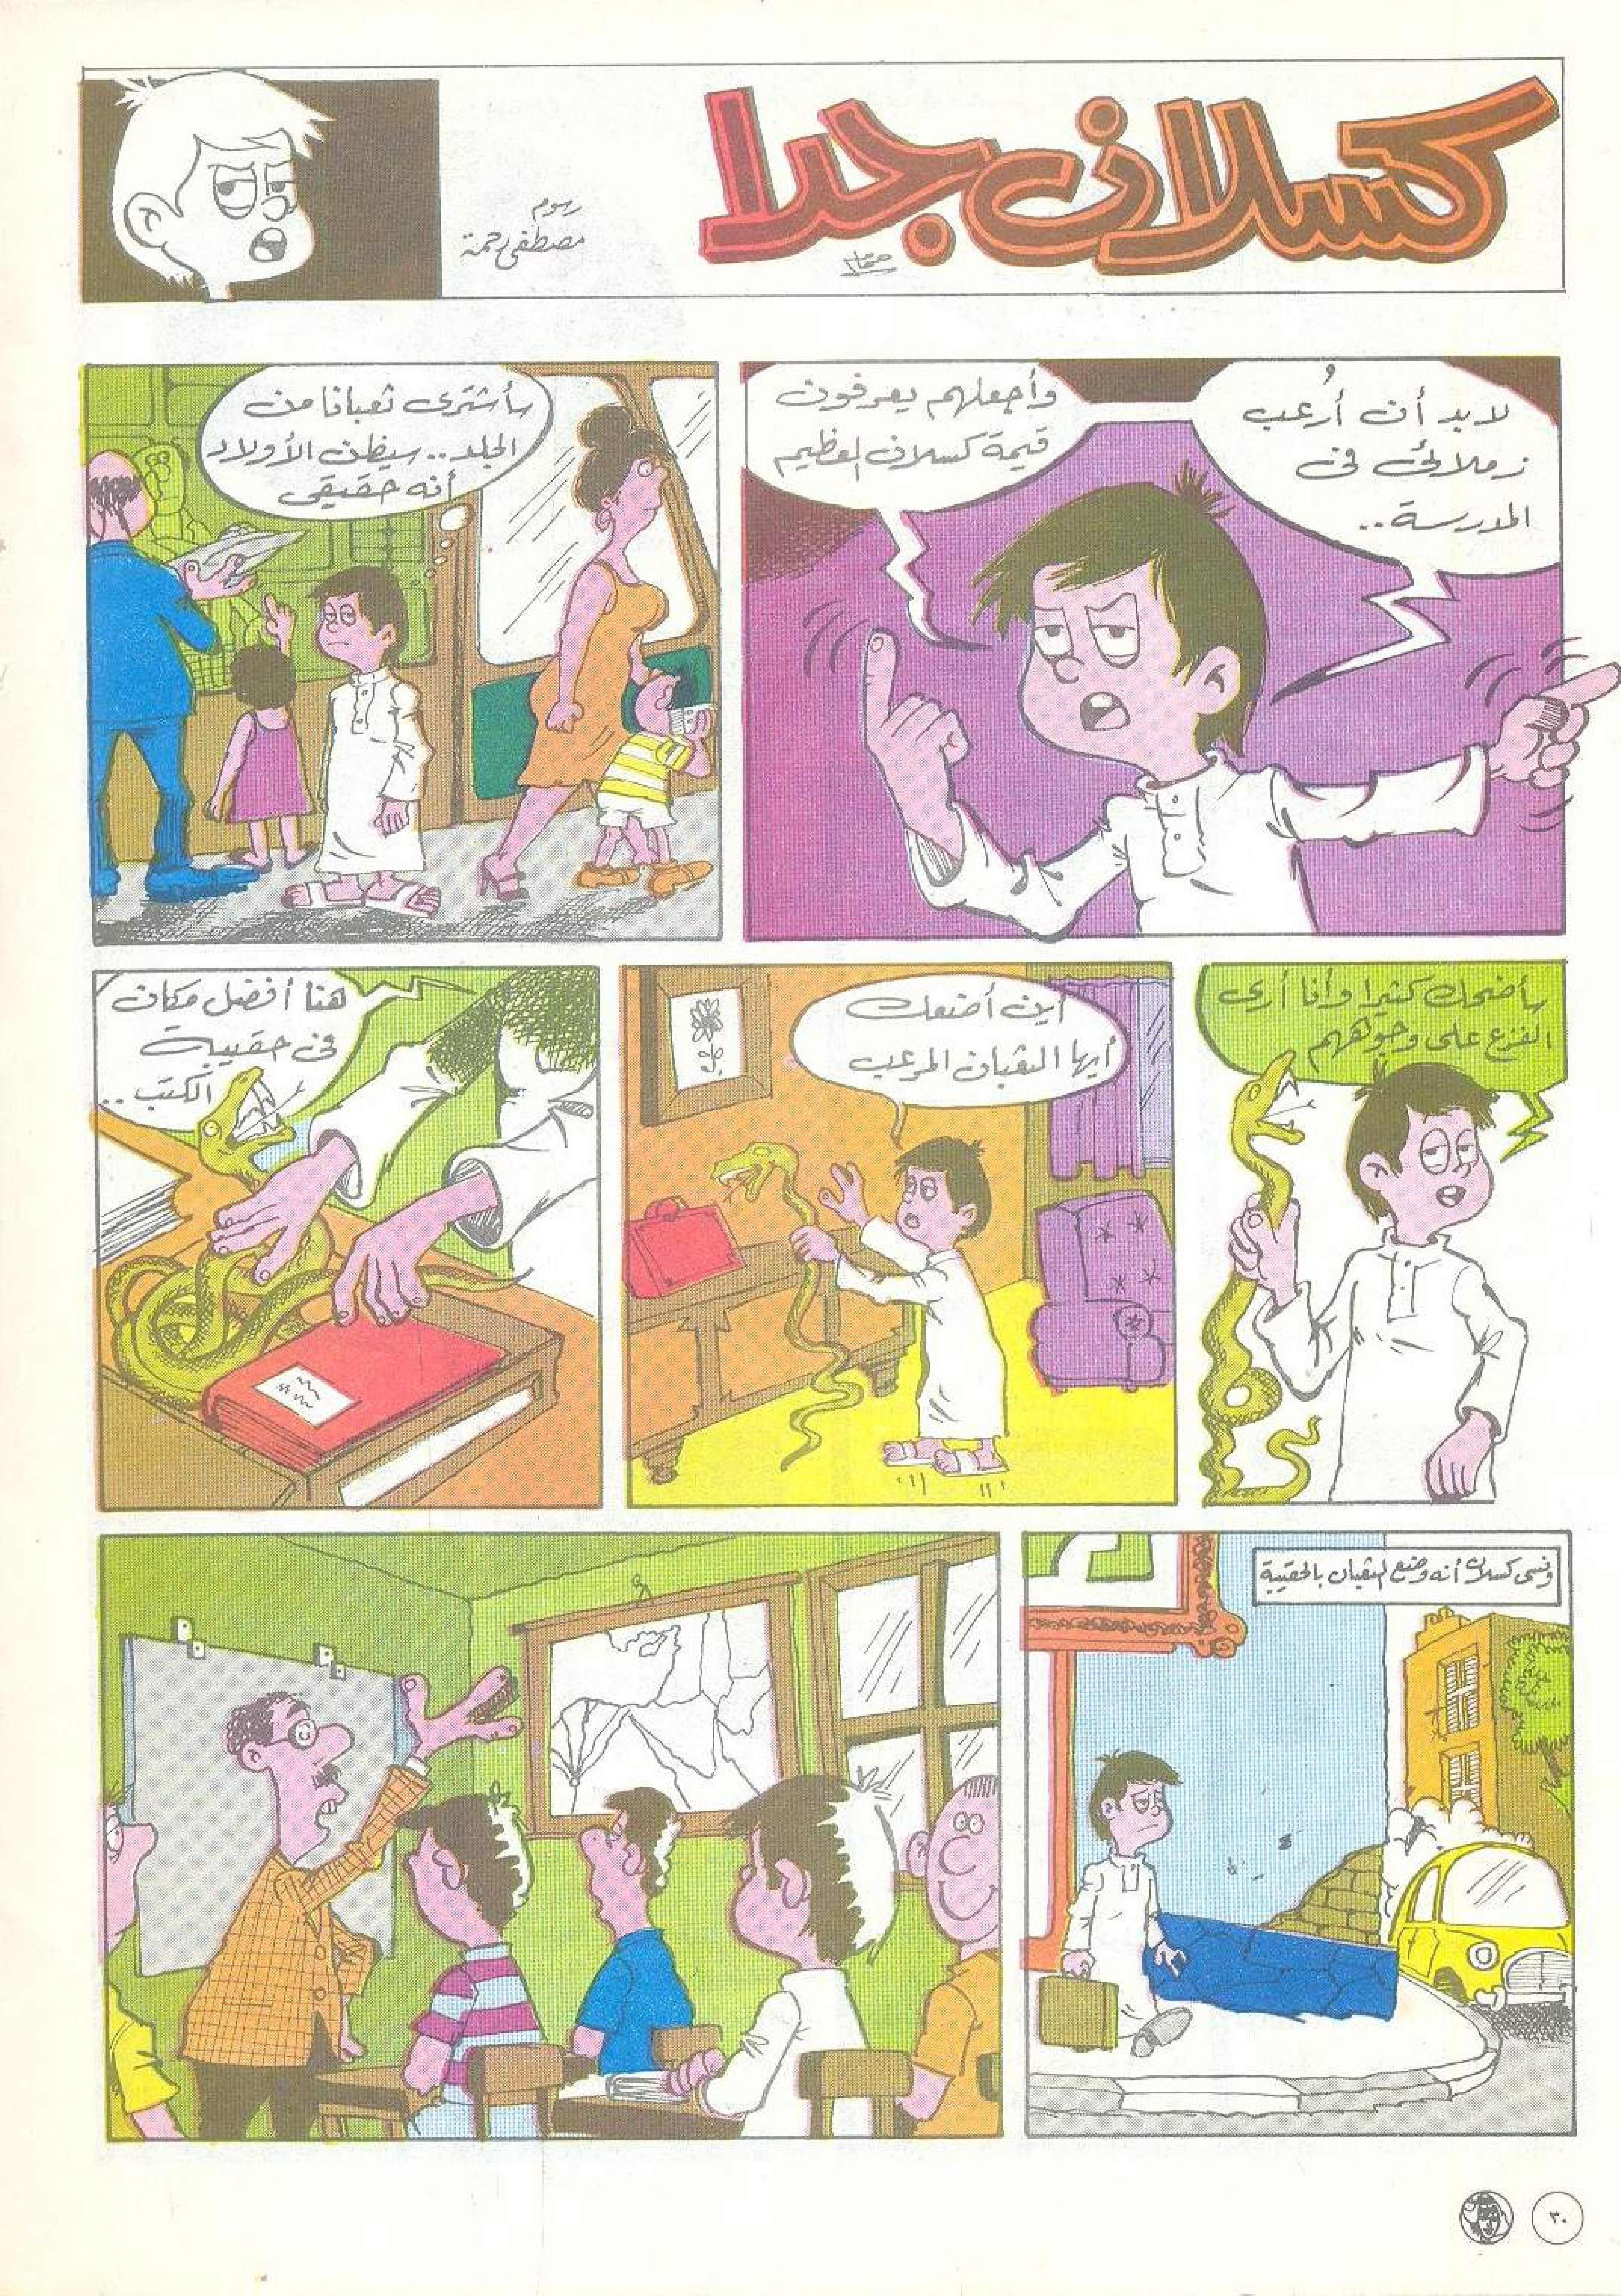 كسلان جدا
رسوم
مصطفى رحمة
لابد أن أُرعب
زملائى فى
المدرسة..
وأجعلهم يعرفون
قيمة كسلان العظيم
سأشترى ثعبانا من
الجلد.. سيظن الأولاد
أنه حقيقى
سأضحك كثيرا وأنا أرى
الفزع على وجوههم
أين أضعك
أيها الثعبان المرعب
هنا أفضل مكان
فى حقيبة
الكتب..
ونسى كسلان أنه وضع الثعبان بالحقيبة
٣٠